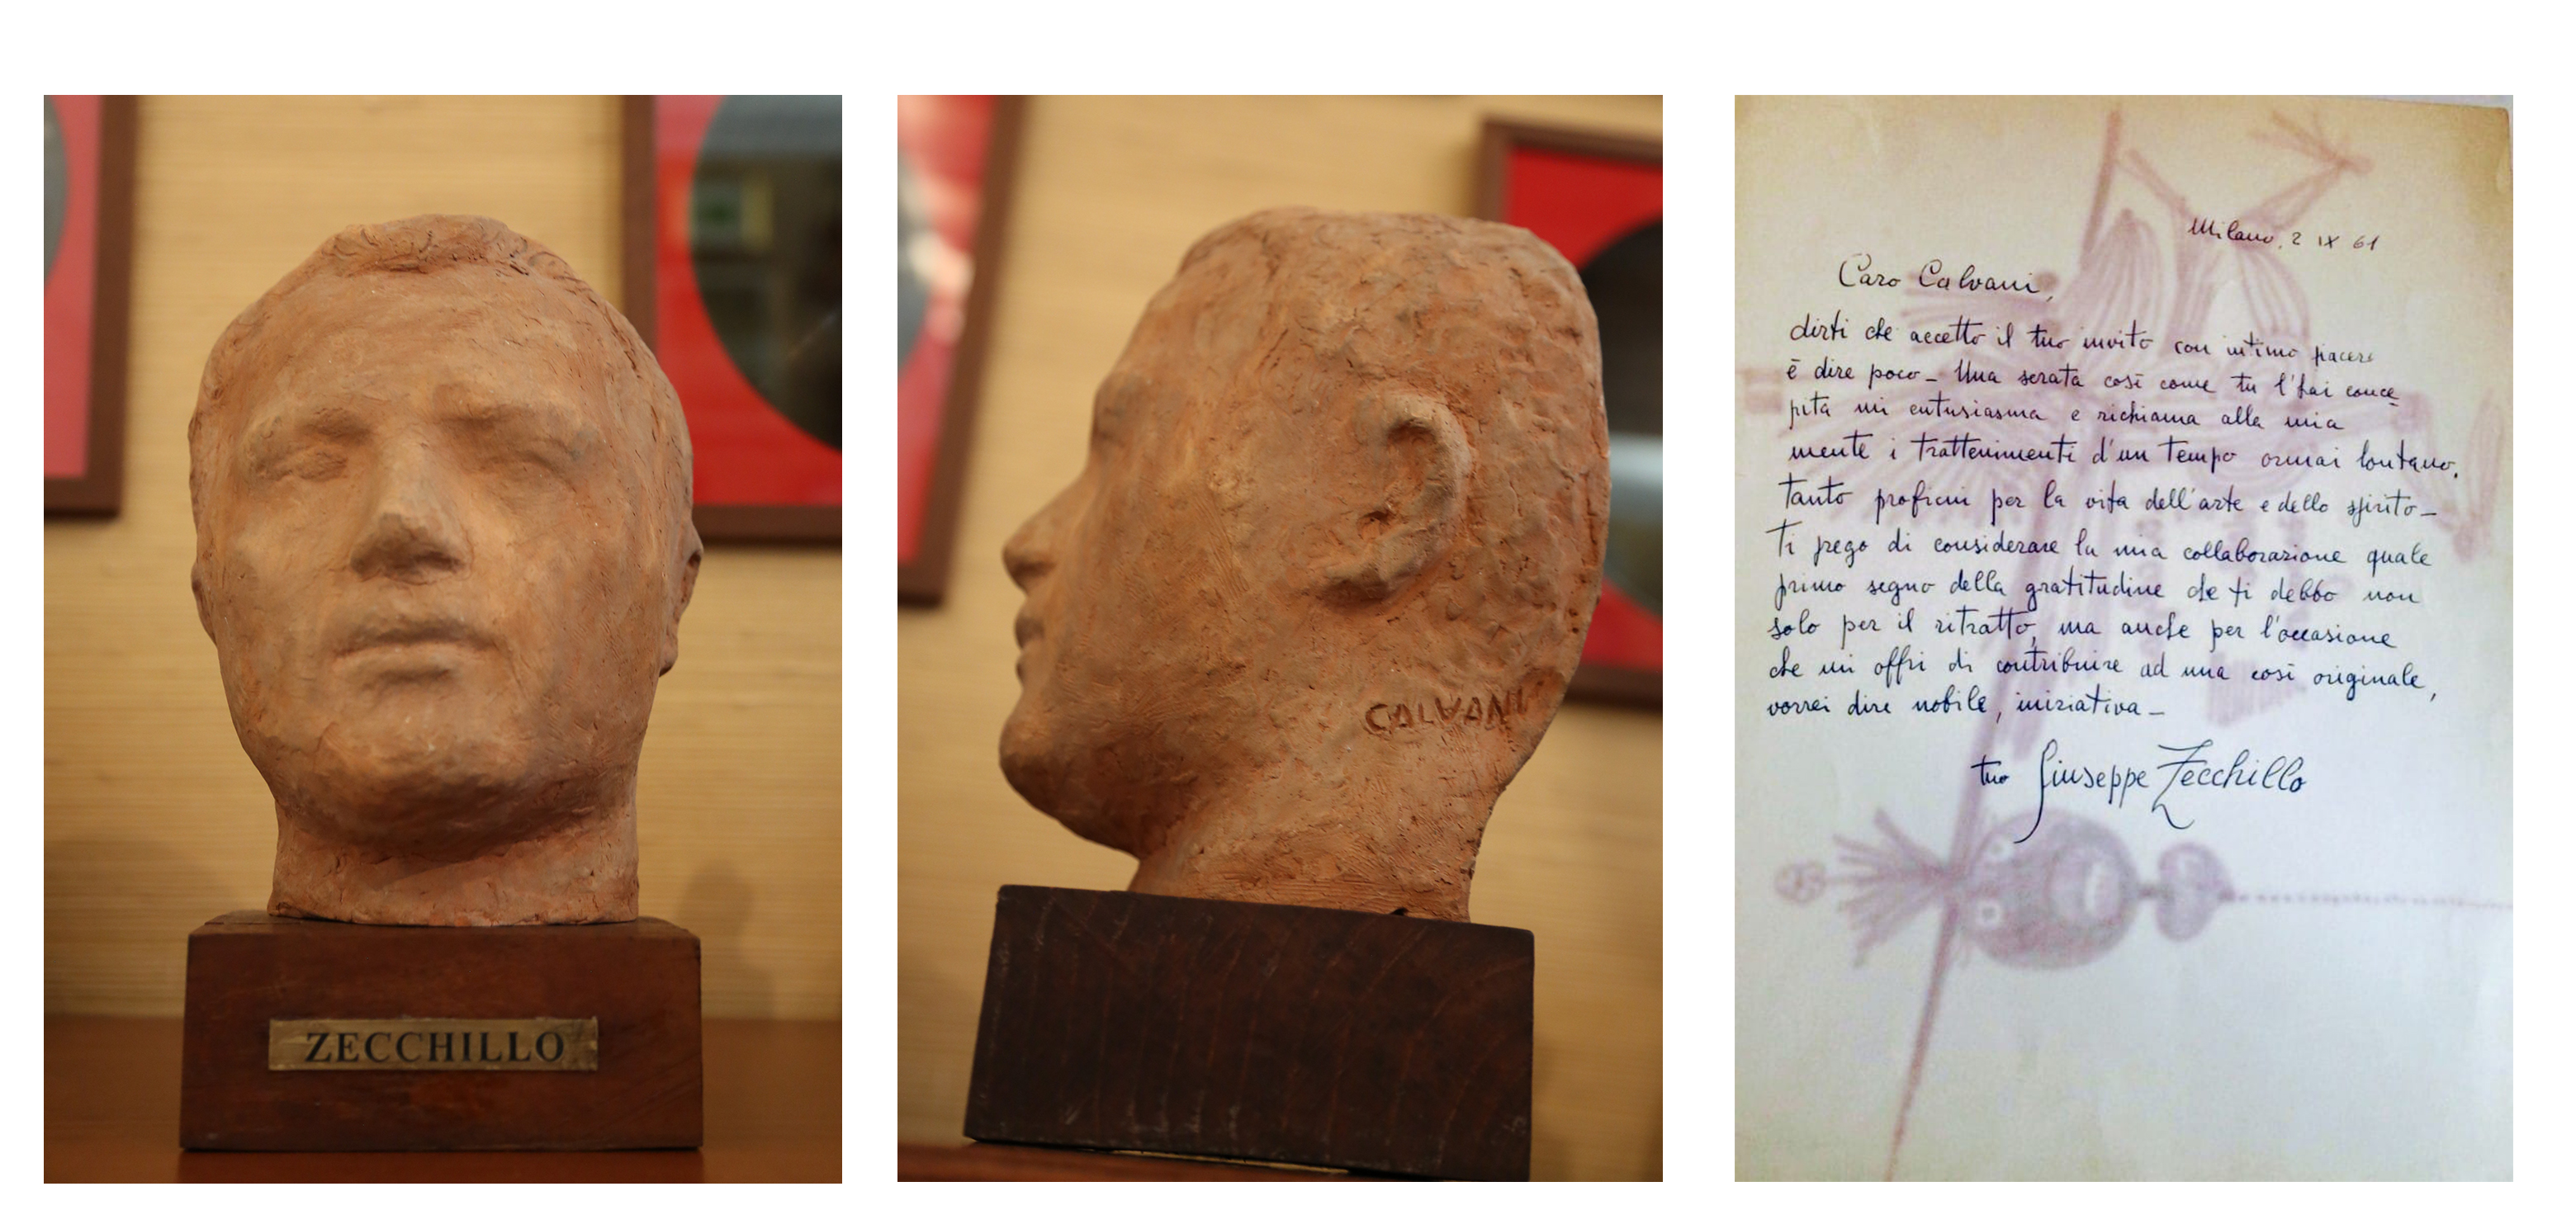 ZECCHILLO
CALVANI
Milano, 2 IX 61
Caro Calvani,
dirti che accetto il tuo invito con intimo piacere
è dire poco_ Una serata così come tu l'hai conce
pita mi entusiasma e richiama alla mia
mente i trattenimenti d'un tempo ormai lontano,
tanto proficui per la vita dell'arte e dello spirito_
Ti prego di considerare la mia collaborazione quale
primo segno della gratitudine che ti debbo non
solo per il ritratto, ma anche per l'occasione
che mi offri di contribuire ad una così originale,
vorrei dire nobile, iniziativa_
tuo Giuseppe Zecchillo